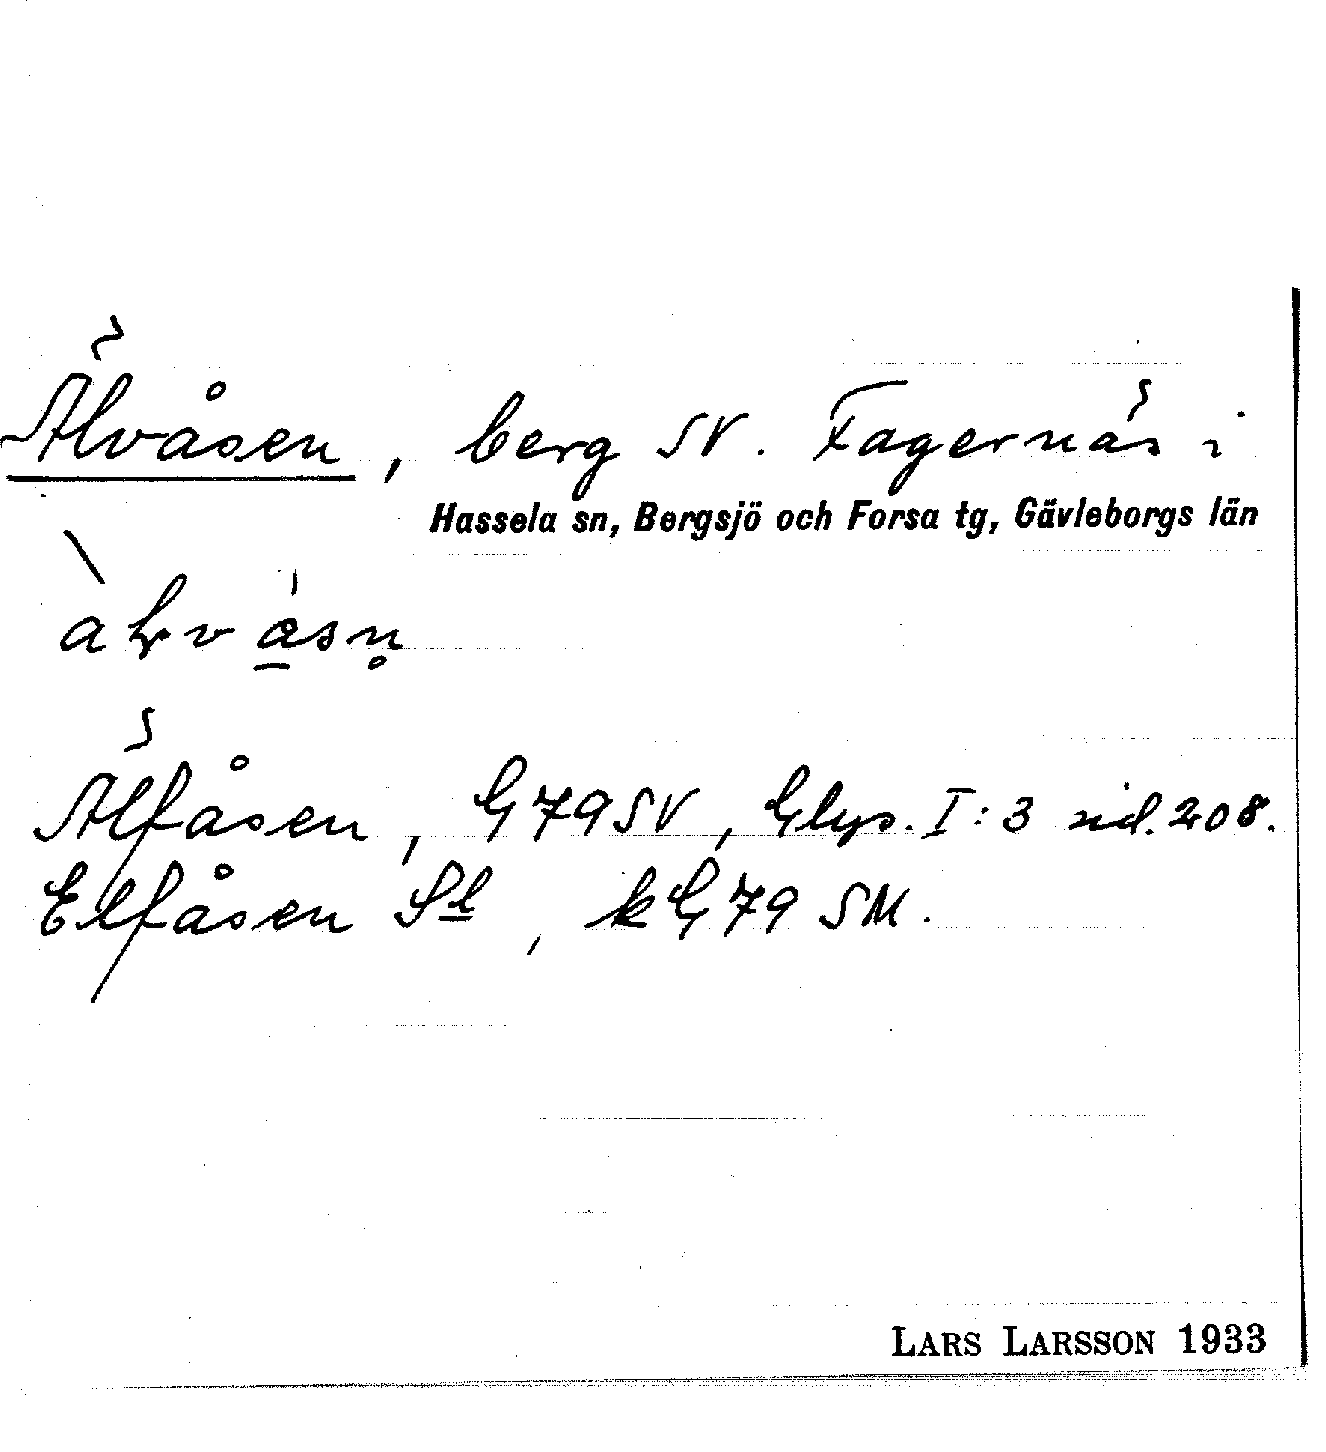 Älvåsen, berg SV. Fagernäs i
Hassela sn, Bergsjö och Forsa tg, Gävleborgs län
Älfåsen, G 79 SV, Glys. I:3 sid. 208.
Elfåsen St, kG 79 SM.
LARS LARSSON 1933